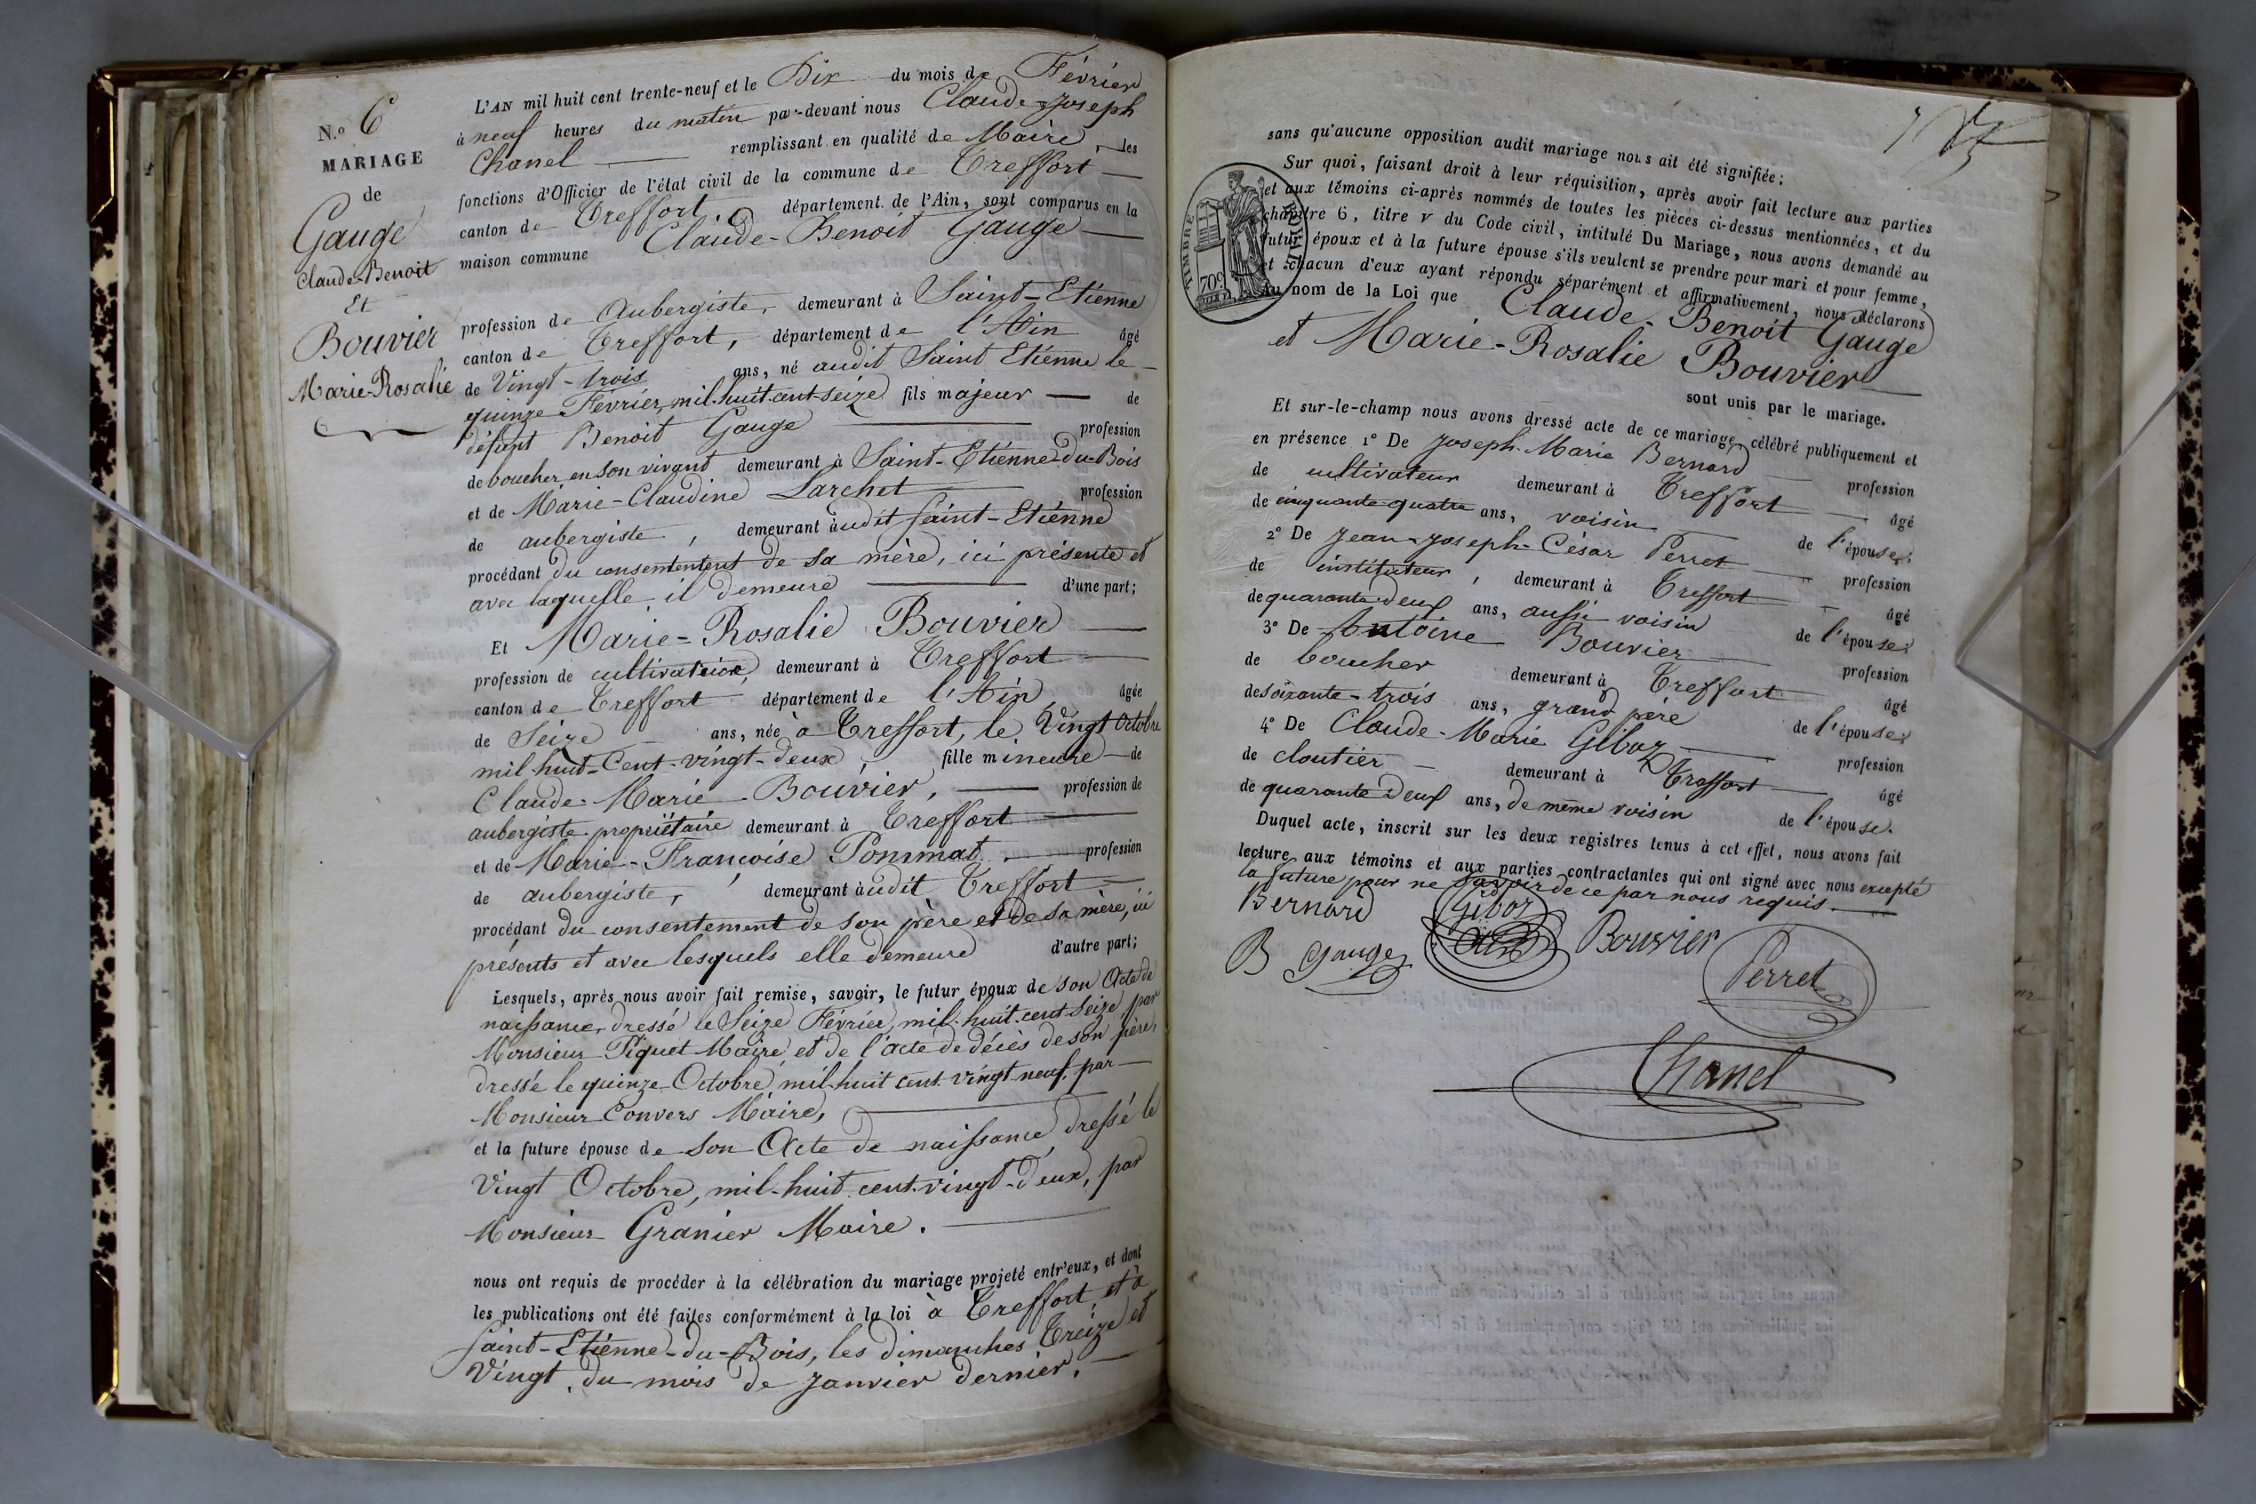 N.o 6
MARIAGE
de
Gauge
Claude-Benoit
Et
Bouvier
Marie-Rosalie
L'AN mil huit cent trente-neuf et le Dix du mois de Février
à neuf heures du matin par-devant nous Claude-Joseph
Chanel remplissant en qualité de Maire, les
fonctions d'Officier de l'état civil de la commune de Treffort
canton de Treffort, département de l'Ain, sont comparus en la
maison commune Claude-Benoit Gauge
profession de Aubergiste, demeurant à Saint-Etienne
canton de Treffort, département de l'Ain âgé
de Vingt-trois ans, né audit Saint Etienne le
quinze Février, mil-huit-cent-seize fils majeur de
défunt Benoit Gauge profession
de boucher en son vivant demeurant à Saint-Etienne-du-Bois
et de Marie-Claudine Larchet profession
de aubergiste, demeurant audit Saint-Etienne
procédant du consentement de sa mère, ici présente et
avec laquelle il demeure d'une part;
Et Marie-Rosalie Bouvier
profession de cultivatrice, demeurant à Treffort
canton de Treffort département de l'Ain âgée
de Seize ans, née à Treffort, le Vingt Octobre
mil-huit-Cent-vingt-deux, fille mineure de
Claude-Marie Bouvier, profession de
aubergiste propriétaire demeurant à Treffort
et de Marie-Françoise Pommat profession
de aubergiste, demeurant audit Treffort
procédant du consentement de son père et de sa mère, ici
présents et avec lesquels elle demeure d'autre part;
Lesquels, après nous avoir fait remise, savoir, le futur époux de son Acte de
naissance, dressé le Seize Février, mil-huit-cent-Seize, par
Monsieur Piquet Maire, et de l'acte de décès de son père,
dressé le quinze Octobre, mil-huit cent vingt-neuf, par
Monsieur Convers Maire,
et la future épouse de son Acte de naissance, dressé le
Vingt Octobre, mil-huit cent-vingt-deux, par
Monsieur Granier Maire.
nous ont requis de procéder à la célébration du mariage projeté entr'eux, et dont
les publications ont été faites conformément à la loi à Treffort, et à
Saint-Etienne-du-Bois, les dimanches Treize et
Vingt, du mois de janvier dernier.
sans qu'aucune opposition audit mariage nous ait été signifiée;
Sur quoi, faisant droit à leur réquisition, après avoir fait lecture aux parties
et aux témoins ci-après nommés de toutes les pièces ci-dessus mentionnées, et du
chapitre 6, titre V du Code civil, intitulé Du Mariage, nous avons demandé au
futur époux et à la future épouse s'ils veulent se prendre pour mari et pour femme,
et chacun d'eux ayant répondu séparément et affirmativement, nous déclarons
au nom de la Loi que Claude-Benoit Gauge
et Marie-Rosalie Bouvier
sont unis par le mariage.
TIMBRE ROYAL
70c
Et sur-le-champ nous avons dressé acte de ce mariage, célébré publiquement et
en présence 1° De Joseph-Marie Bernard profession
de cultivateur demeurant à Treffort âgé
de cinquante-quatre ans, voisin de l'épouse;
2° De Jean-Joseph-César Perret profession
de instituteur, demeurant à Treffort âgé
de quarante-deux ans, aussi voisin de l'épouse;
3° De Antoine Bouvier profession
de boucher demeurant à Treffort âgé
de soixante-trois ans, grand père de l'épouse;
4° De Claude-Marie Giboz profession
de cloutier demeurant à Treffort âgé
de quarante-deux ans, de même voisin de l'épouse.
Duquel acte, inscrit sur les deux registres tenus à cet effet, nous avons fait
lecture aux témoins et aux parties contractantes qui ont signé avec nous excepté
la future pour ne savoir de ce par nous requis.
Bernard Giboz Bouvier
B Gauge
Perret
Chanel